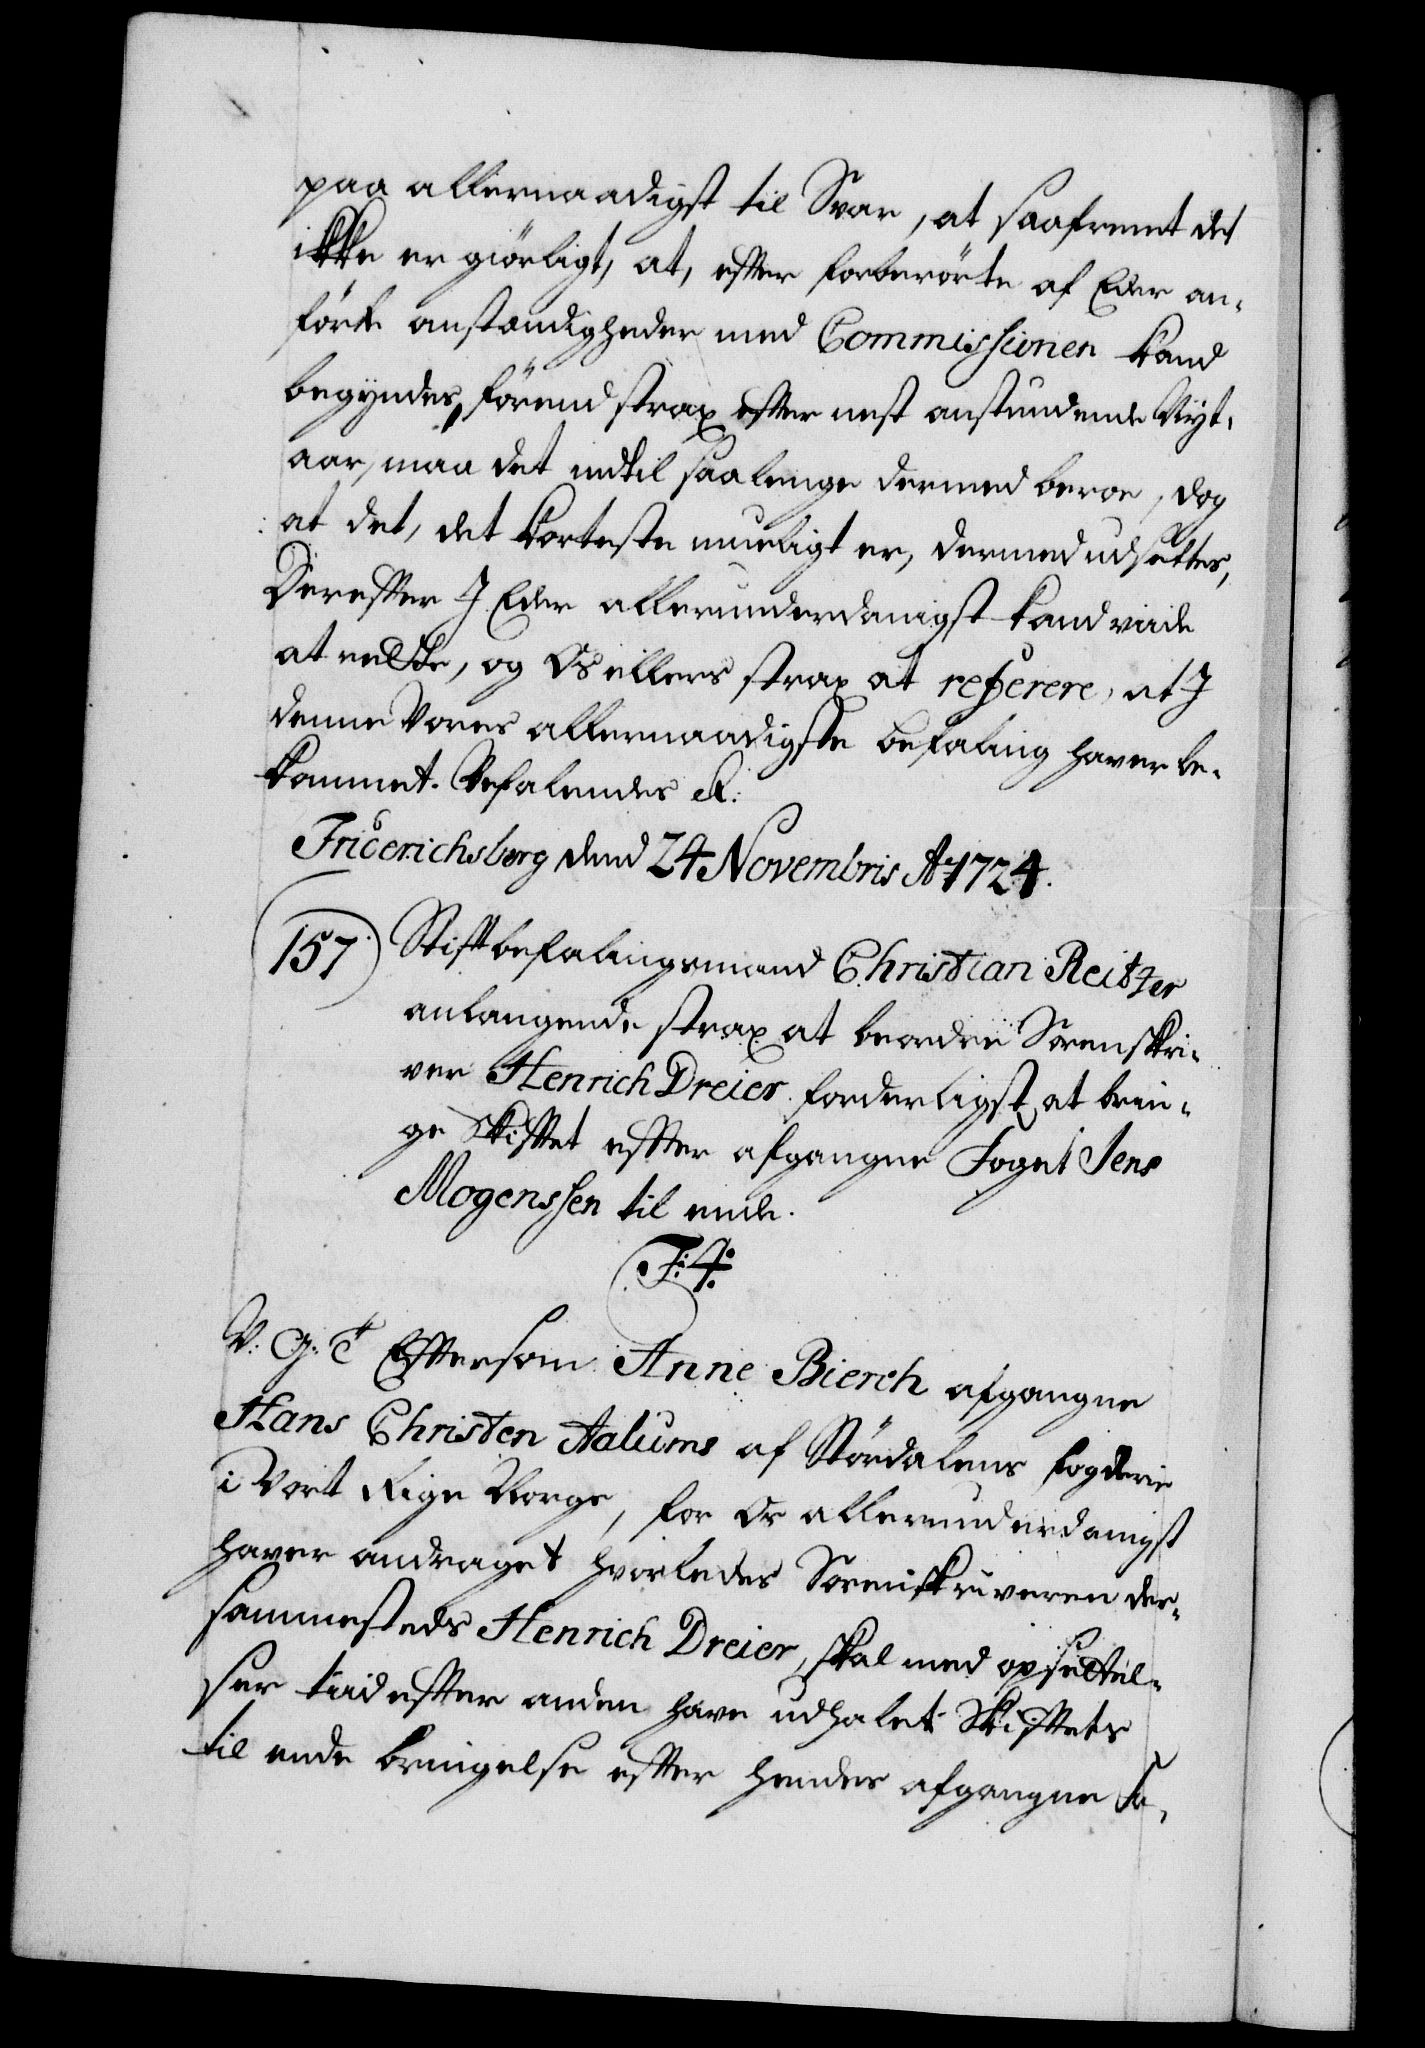 paa allernaadigst til Svar, at saafremt det
ikke er giörligt, at, efter forberörte af Eder an-
förte omstændigheder med Commissionen kand
begyndes, förend strax efter nest anstundende Nyt-
aar, maa det indtil saalenge dermed beroe, dog
at det, det korteste mueligt er, dermed udsettes,
Derefter I Eder allerunderdanigst kand viide
at rette, og Os ellers strax at referere, at I
denne Vores allernaadigste befaling haver be-
kommet. Befalendes &:
Friderichsberg dend 24 Novembris Ao 1724.
157 Stiftbefalingsmand Christian Reitzer
anlangende strax at beordre Sorenskri-
ver Henrich Dreier forderligst at brin-
ge Skiftet efter afgangne Foget Jens
Mogenssen til ende.
F: 4:
V: G: T Eftersom Anne Bierch afgangne
Hans Christen Aalums af Stördalens fogderie
i Vort Rige Norge, for Os allerunderdanigst
haver andraget hvorledes Sorenskriveren der-
sammesteds Henrich Dreier, skal med opsettel-
ser tiid efter anden have udhalet Skiftets
til ende bringelse efter hendes afgangne Fa-